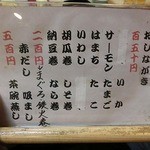 おしながき
百五十円
いか
サーモン たまご
はまち たこ
いわし
胡瓜巻 しそ巻
納豆巻 なら巻
二百円 まぐろ鉄火巻
赤だし 吸まし
五百円 茶碗蒸し